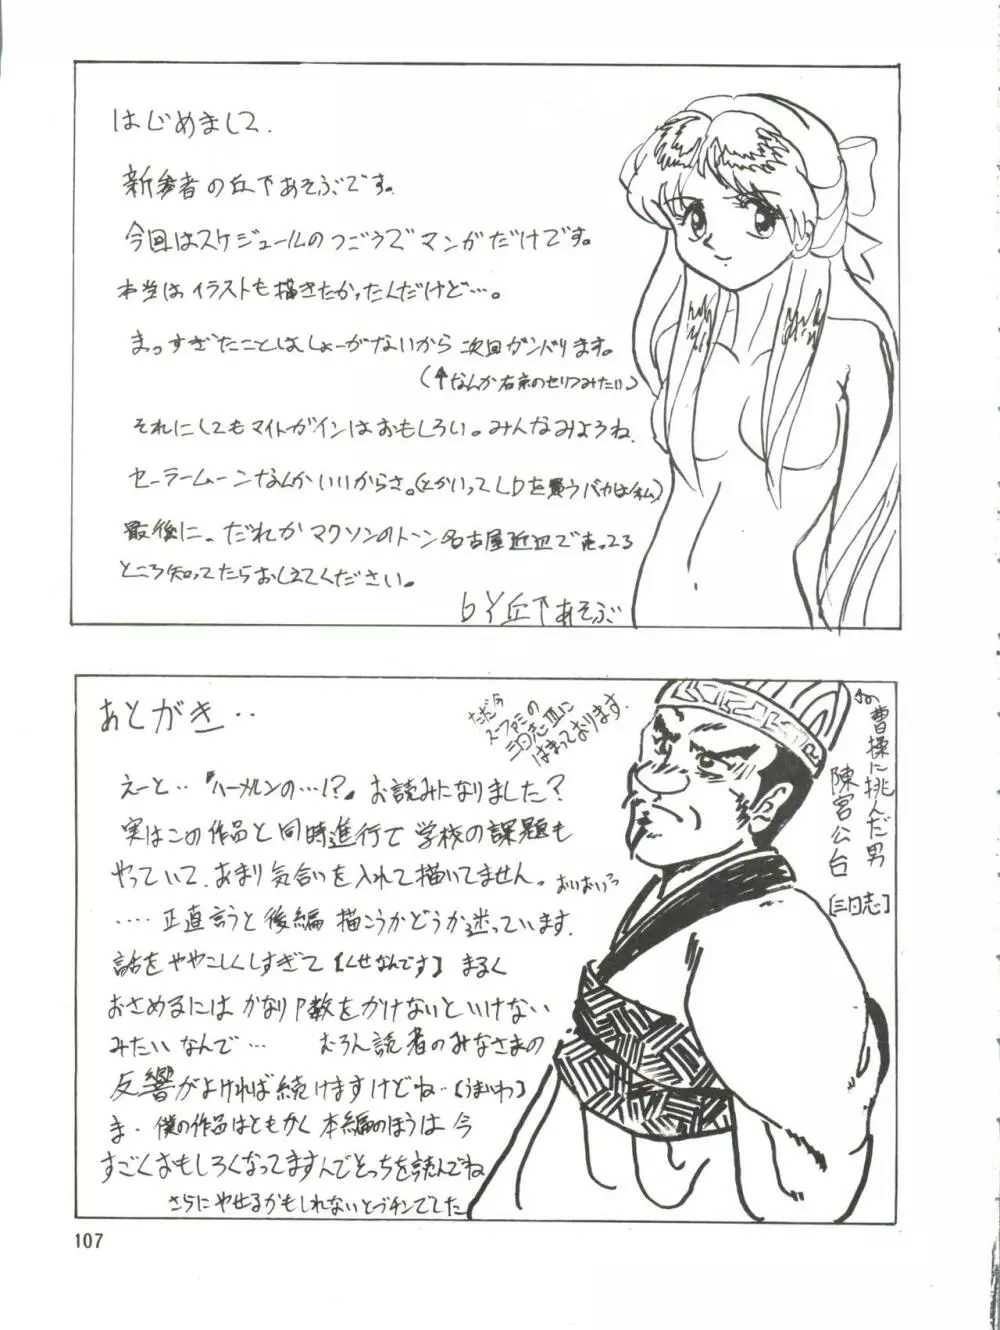 はじめまして.
新参者の丘下あそぶです。
今回はスケジュールのつごうでマンガだけです。
本当はイラストも描きたかったんだけど…。
まっすぎたことはしょーがないから次回ガンバります。
(↑なんか右京のセリフみたい)
それにしてもマイトガインはおもしろい。みんなみようね.
セーラームーンなんかいいからさ。(とかいってLDを買うバカは私)
最後に。だれかマクソンのトーン名古屋近辺で売ってる
ところ知ってたらおしえてください。
bY丘下あそぶ
あとがき‥
ただ今
スーファミの
三国志Ⅲに
はまっております.
えーと‥『ハーメルンの…!?』お読みになりました?
実はこの作品と同時進行で学校の課題も
やっていて、あまり気合いを入れて描いてません。おいおいっ
‥‥正直言うと後編描こうかどうか迷っています.
話をややこしくしすぎて【くせなんです】まるく
おさめるにはかなりP数をかけないといけない
みたいなんで… むろん読者のみなさまの
反響がよければ続けますけどね‥【うまいわ】
ま・僕の作品はともかく本編のほうは今
すごくおもしろくなってますんでそっちを読んでね
さらにやせるかもしれないとブチンででした
曹操に挑んだ男
陳宮公台
[三国志]
107